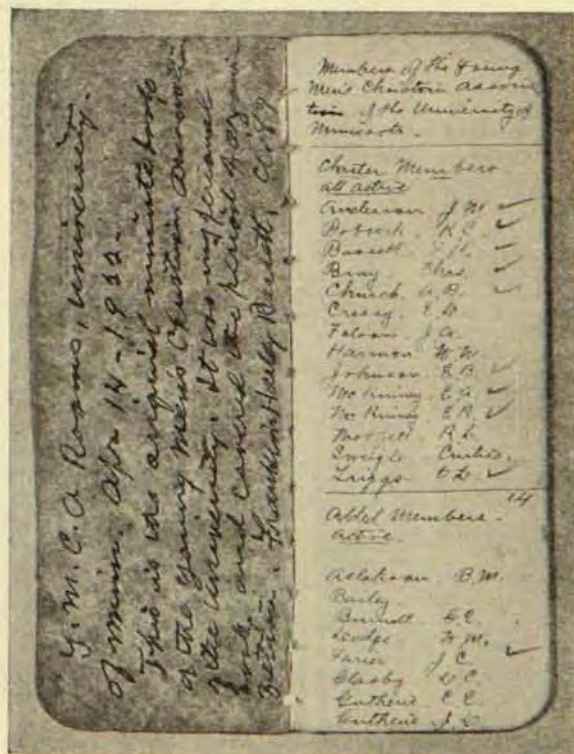 Y.M.C.A Rooms, University.
of Minn. Apr 14 - 1922.
This is the original minute book
of the Young Men's Christian Association
of the University. It was my personal
book and covered the period of
Franklin
Members of the Young
Men's Christian Associa
tion of the University of
Minnesota.
Charter Members
all active
Anderson J. M. ✓
Babcock K. C. ✓
Bassett ✓
Bray Chas. ✓
Church A. B. ✓
Creasy E. D.
Falcon J. A.
Harmon W. W.
Johnson E. B. ✓
McKinney E. A. ✓
McKinney E. R. ✓
R. L.
Swigle
Triggs O L. ✓
14
Added Members.
active.
B. M.
Bailey
Burnell E. E.
Dodge W. M.
J. C. ✓
Glasby D. C.
Guthrie C. E.
Guthrie J. D.